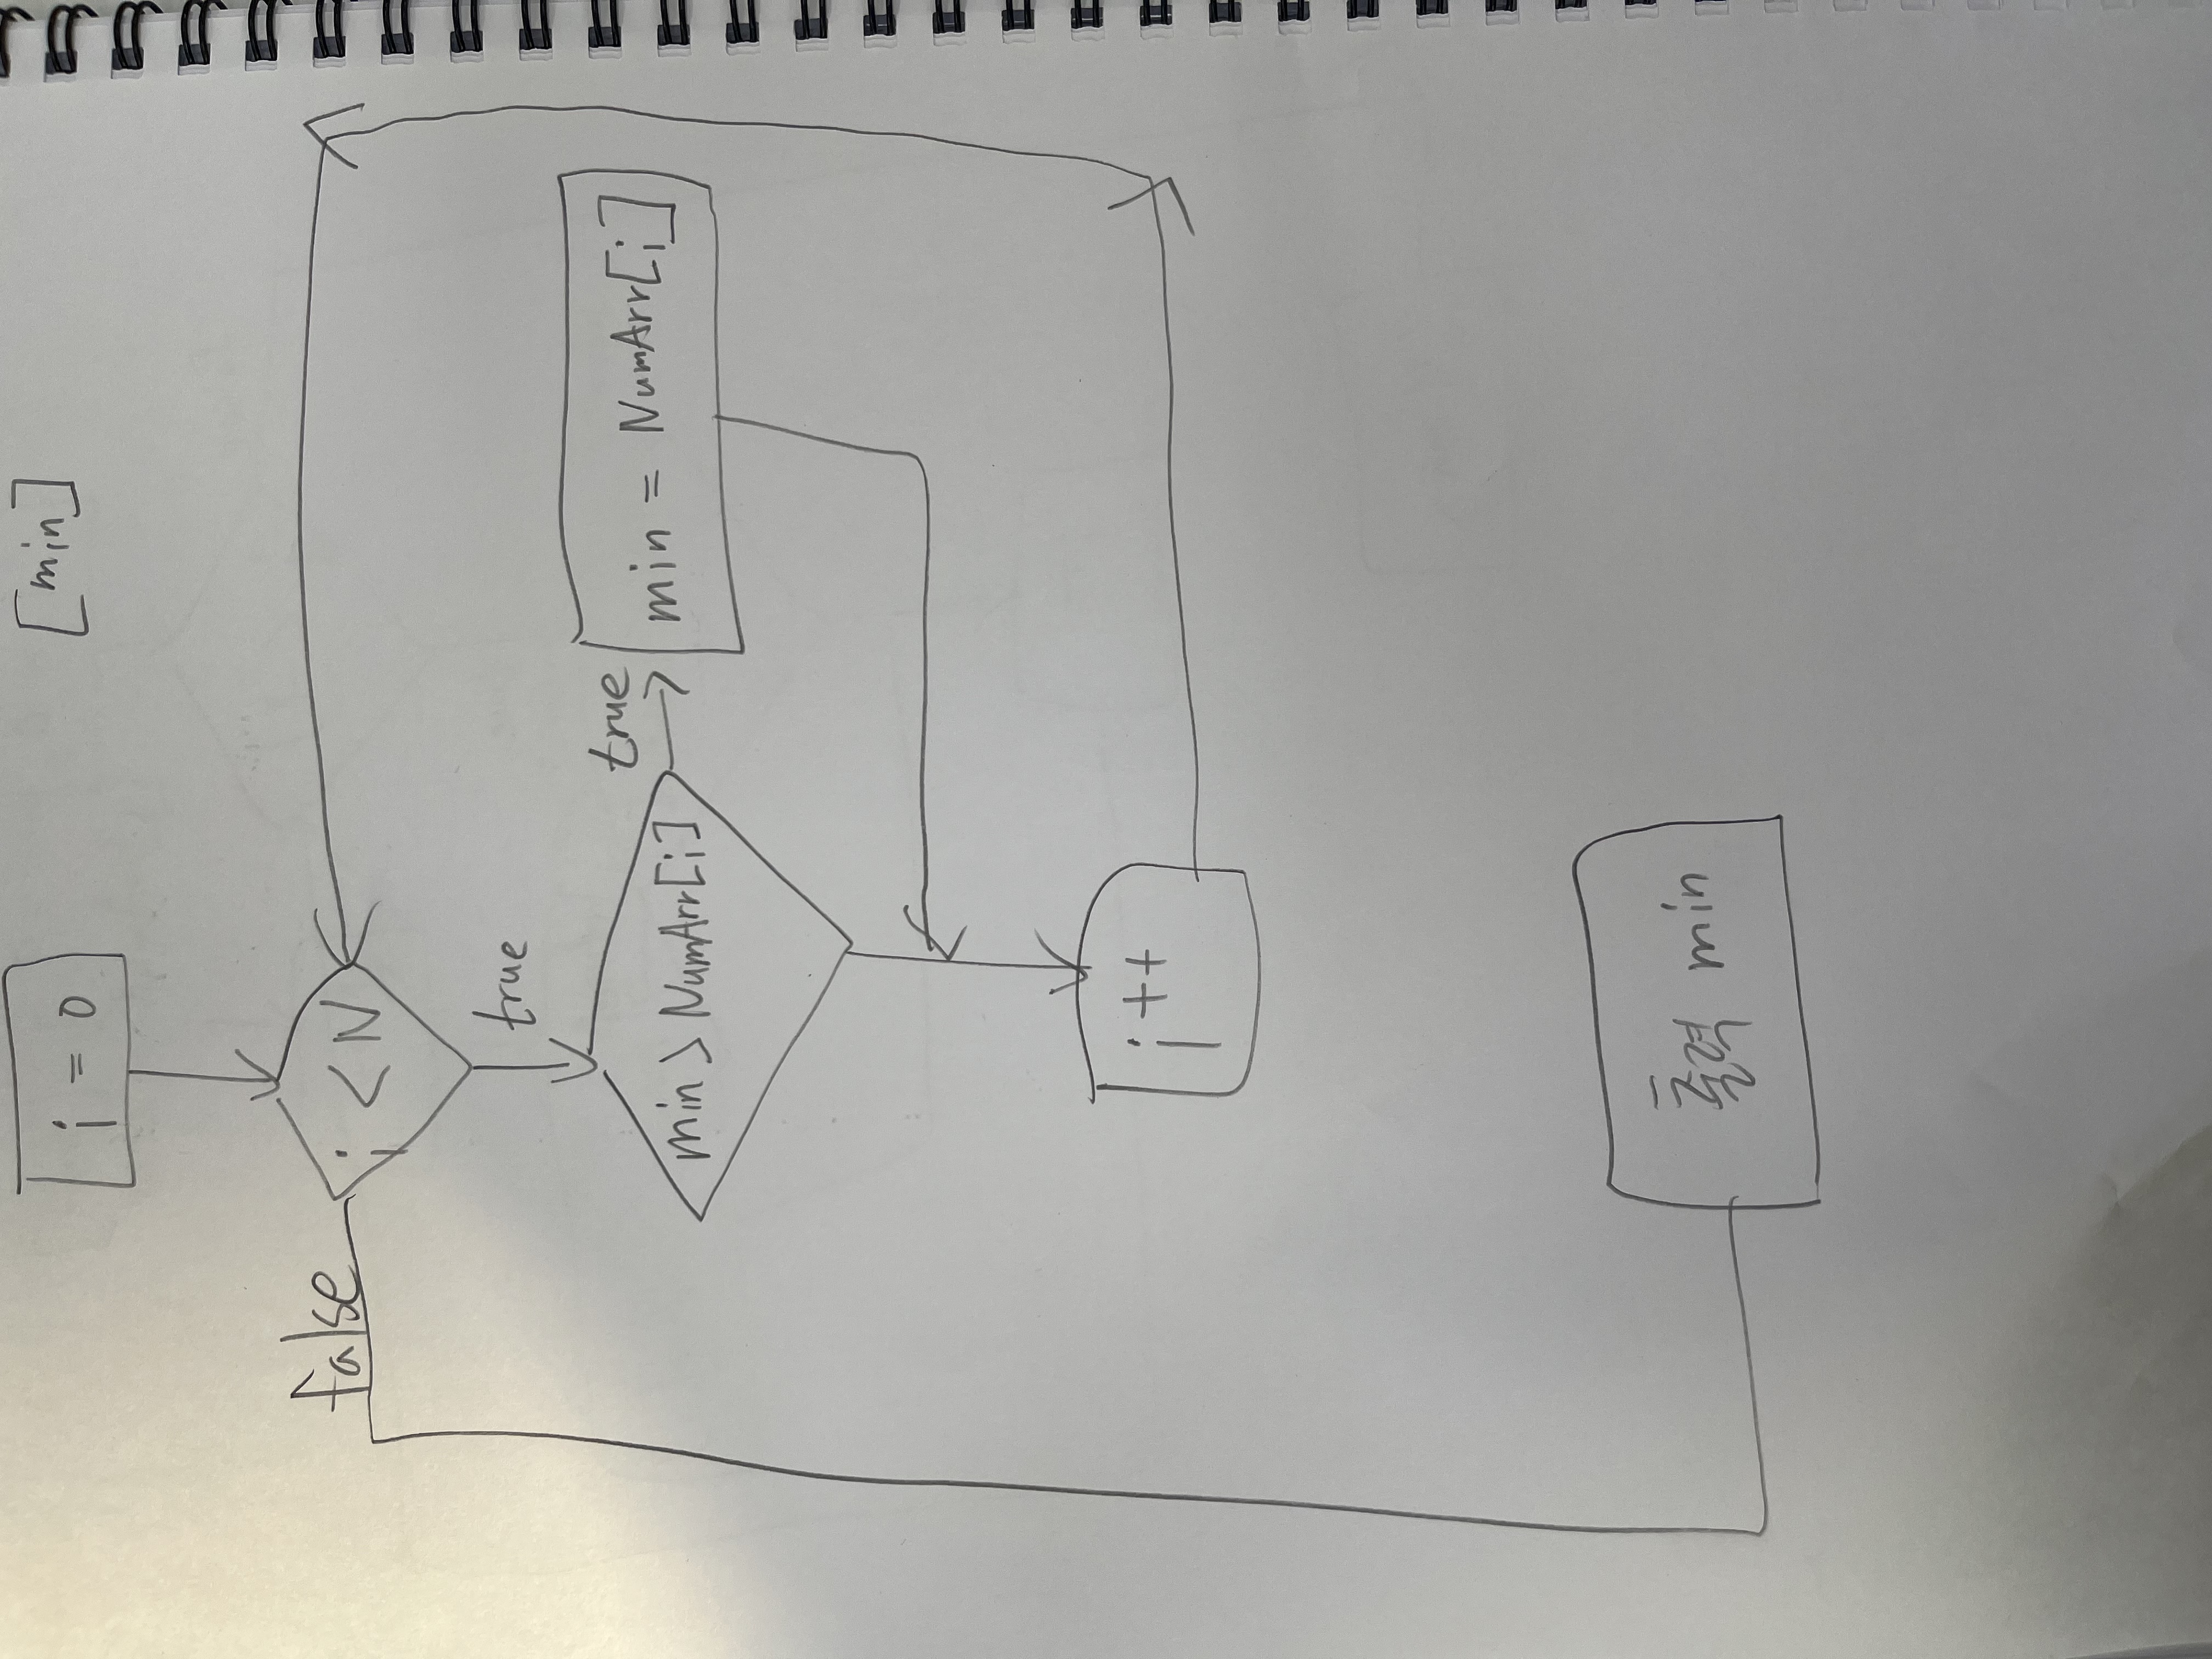 i = 0
[min]
false
i < N
true
min > NumArr[i]
true
min = NumArr[i]
i++
출력 min